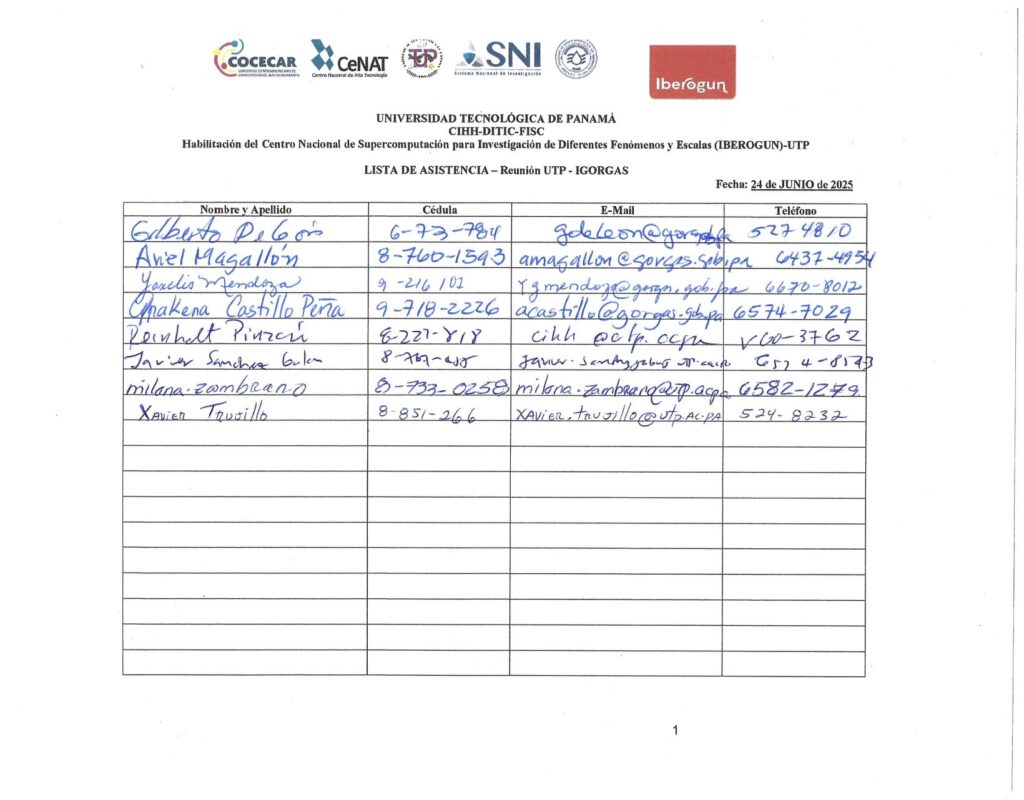 COCECAR
CeNAT
Centro Nacional de Alta Tecnología
SNI
Sistema Nacional de Investigación
Iberogun
UNIVERSIDAD TECNOLÓGICA DE PANAMÁ
CIHH-DITIC-FISC
Habilitación del Centro Nacional de Supercomputación para Investigación de Diferentes Fenómenos y Escalas (IBEROGUN)-UTP
LISTA DE ASISTENCIA – Reunión UTP - IGORGAS
Fecha: 24 de JUNIO de 2025
Nombre y Apellido Cédula E-Mail Teléfono
Gilberto De León 6-73-784 527 4810
Ariel Magallón 8-760-1593 amagallon@gorgas.gob.pa 6437-4954
Yaxelis Mendoza 9-216 101 6670-8012
Castillo Peña 9-718-2226 acastillo@gorgas.gob.pa 6574-7029
Reinhardt Pinzón cihh
Javier Sanchez
milona.zambrano 8-733-0258 milona.zambrano@utp.ac.pa 6582-1279
Xavier Trujillo 8-851-266 Xavier.trujillo@utp.Ac.PA 524-8232
1